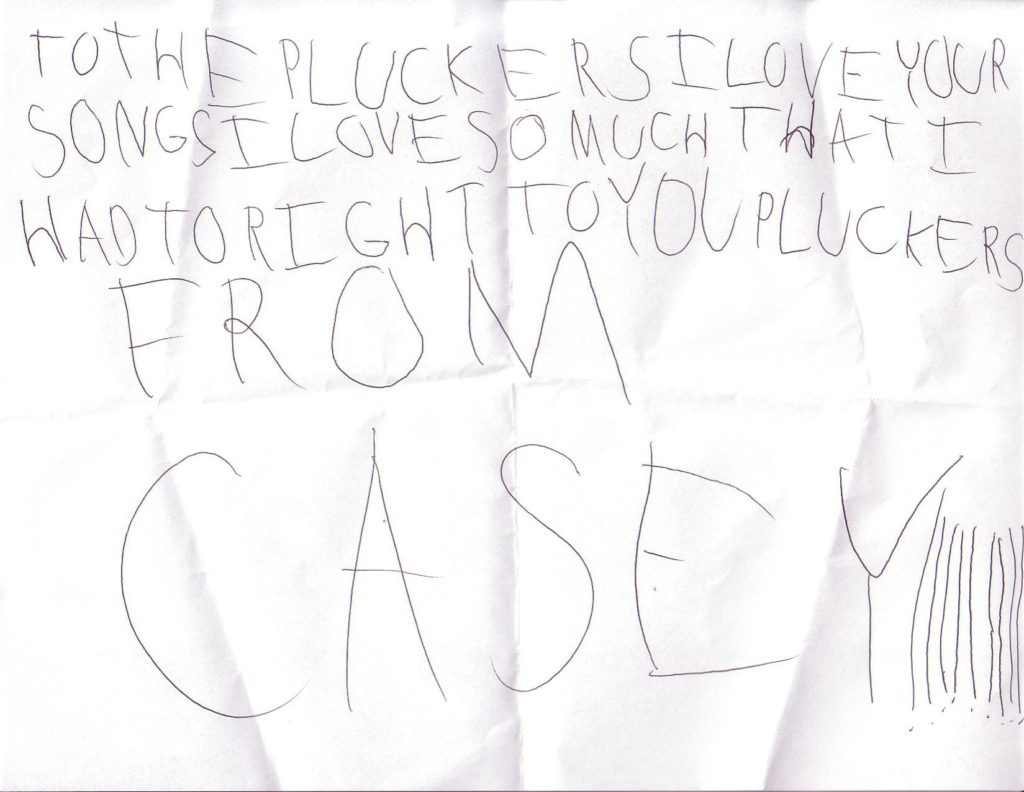 TO THE PLUCKERS I LOVE YOUR
SONGS I LOVE SO MUCH THAT I
HAD TO RIGHT TO YOU PLUCKERS
FROM
CASEY!!!!!!!!!